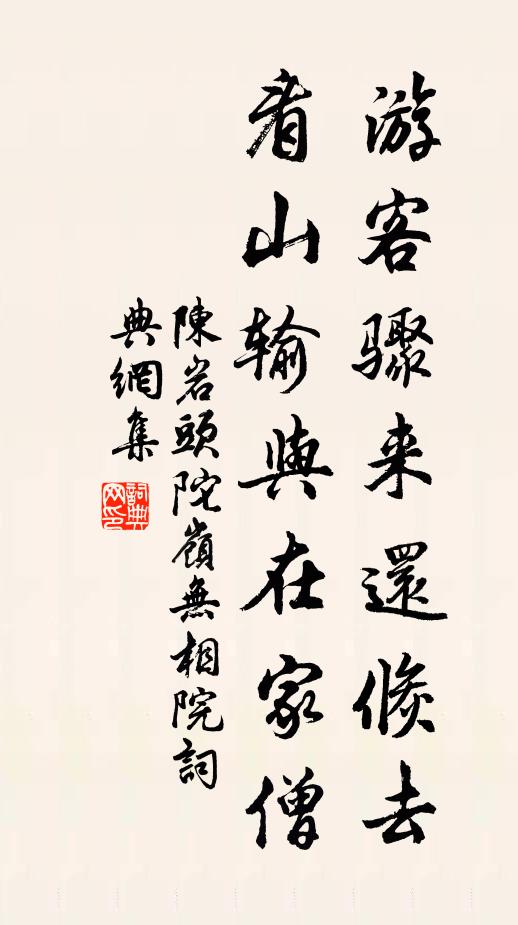 游客骤来還倐去
看山输與在家僧
陳岩頭陀嶺無相院詞
典網集
詞典网印